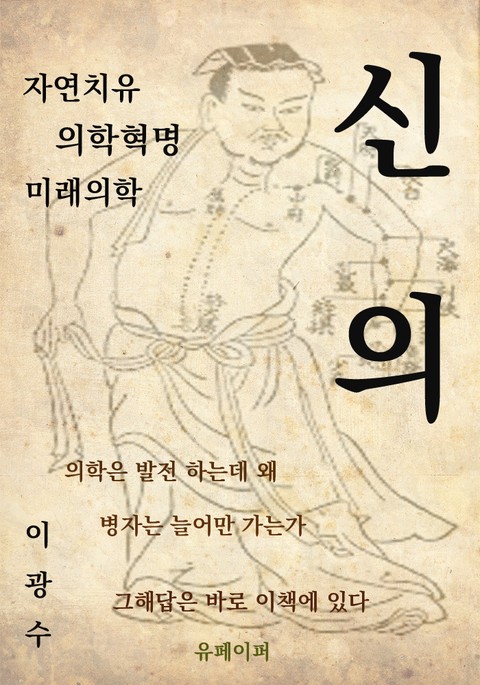 자연치유
의학혁명
미래의학
신의
의학은 발전 하는데 왜
병자는 늘어만 가는가
그해답은 바로 이책에 있다
이광수
유페이퍼